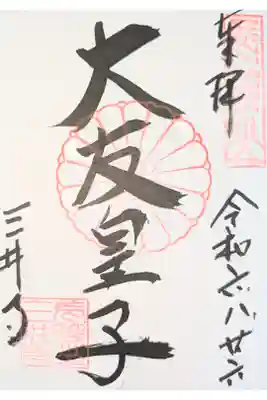 奉拝
令和六.八.廿六
大友皇子
三井寺